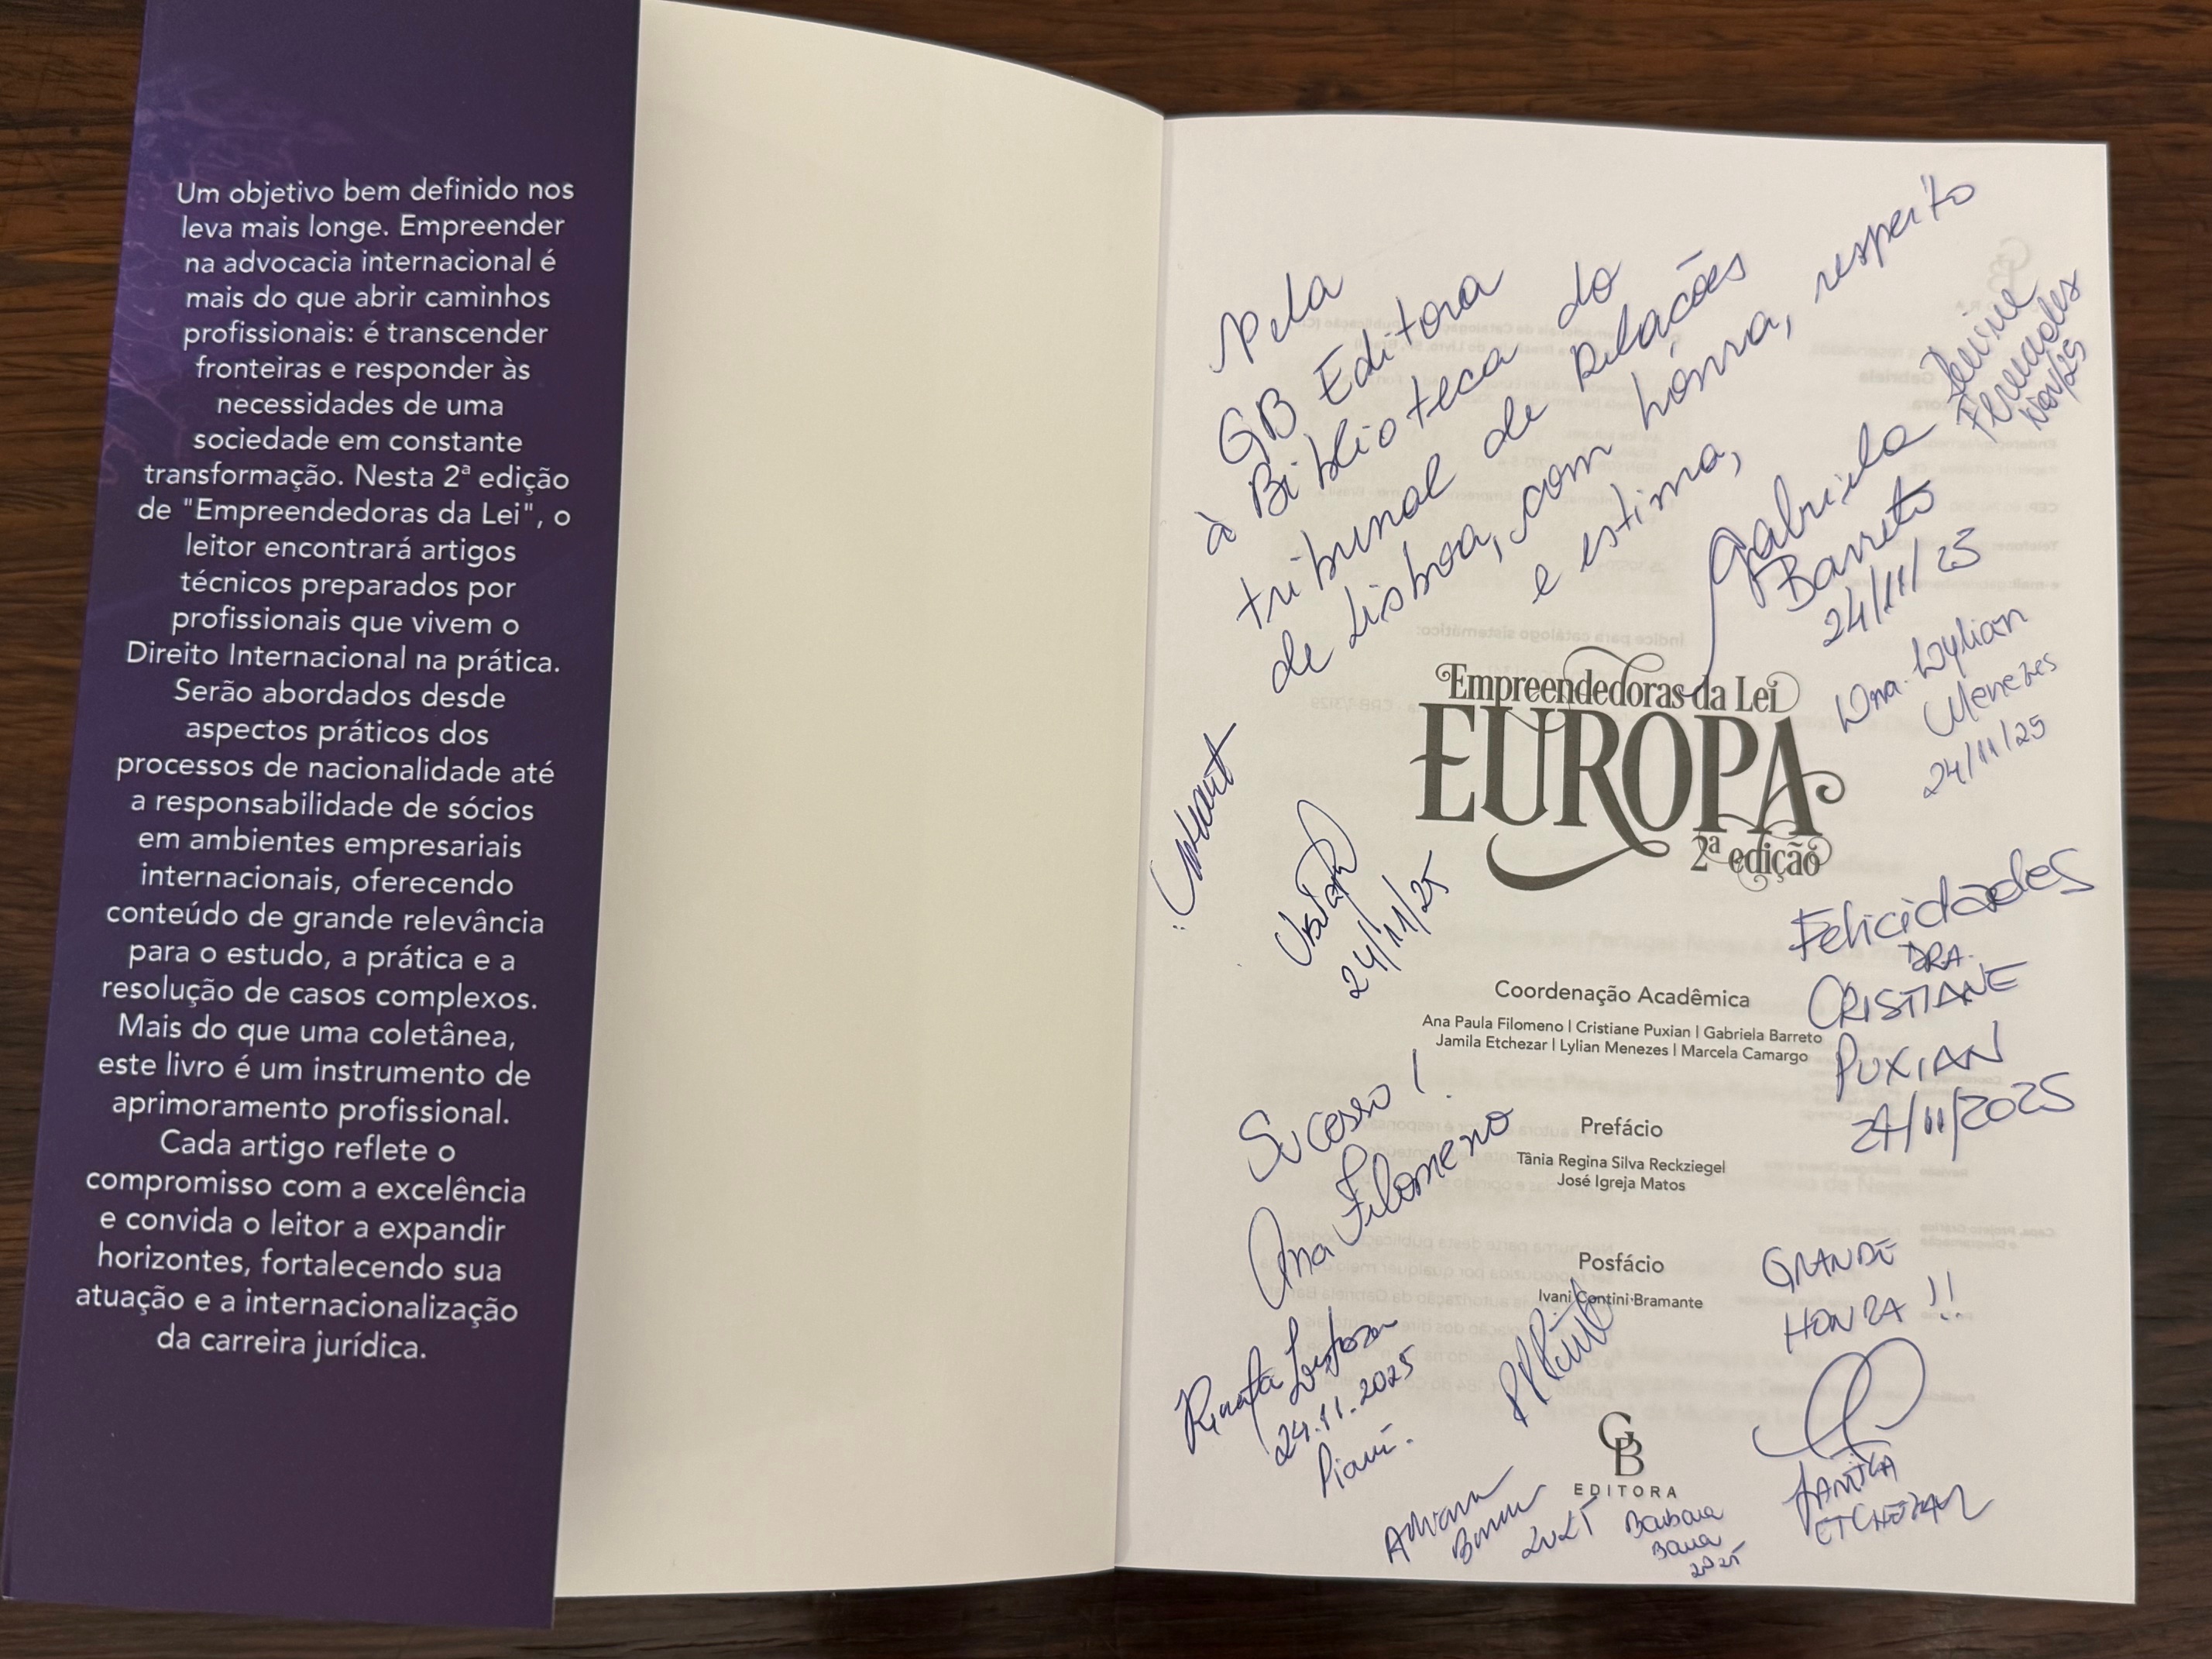 Um objetivo bem definido nos
leva mais longe. Empreender
na advocacia internacional é
mais do que abrir caminhos
profissionais: é transcender
fronteiras e responder às
necessidades de uma
sociedade em constante
transformação. Nesta 2ª edição
de "Empreendedoras da Lei", o
leitor encontrará artigos
técnicos preparados por
profissionais que vivem o
Direito Internacional na prática.
Serão abordados desde
aspectos práticos dos
processos de nacionalidade até
a responsabilidade de sócios
em ambientes empresariais
internacionais, oferecendo
conteúdo de grande relevância
para o estudo, a prática e a
resolução de casos complexos.
Mais do que uma coletânea,
este livro é um instrumento de
aprimoramento profissional.
Cada artigo reflete o
compromisso com a excelência
e convida o leitor a expandir
horizontes, fortalecendo sua
atuação e a internacionalização
da carreira jurídica.
Pela
GB Editora
à Biblioteca do
tribunal de Relações
de Lisboa, com honra, respeito
e estima,
Gabriela
Barreto
24/11/25
Fernandes
Nov/25
Lylian
Menezes
24/11/25
Empreendedoras da Lei
EUROPA
2ª edição
24/11/25
Felicidades
DRA.
CRISTIANE
PUXIAN
24/11/2025
Coordenação Acadêmica
Ana Paula Filomeno | Cristiane Puxian | Gabriela Barreto
Jamila Etchezar | Lylian Menezes | Marcela Camargo
Sucesso!
Ana Filomeno
Prefácio
Tânia Regina Silva Reckziegel
José Igreja Matos
Posfácio
Ivani Contini Bramante
GRANDE
HONRA!!
JAMILA
ETCHEZAR
Renata
24.11.2025
Piauí.
GB
EDITORA
Adriana
2025
Barbara
2025